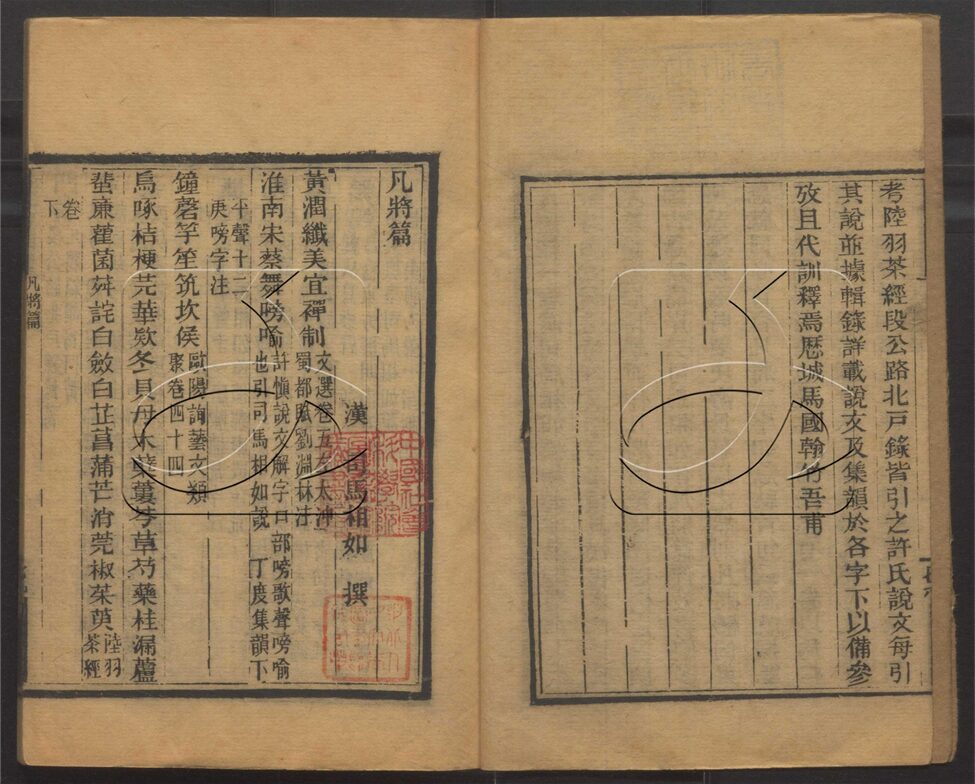 考陸羽茶經段公路北戸錄皆引之許氏說文每引
其說並據輯錄詳載說文及集韻於各字下以備參
攷且代訓釋焉歷城馬國翰竹吾甫
凡將篇
漢 司馬相如 撰
黃潤纖美宜禪制文選卷五左太沖
蜀都賦劉淵林注
淮南宋蔡舞嗙喻許愼說文解字口部嗙歌聲嗙喻
也引司馬相如說 丁度集韻下
平聲十二
庚嗙字注
鐘磬竽笙筑坎侯歐陽詢藝文類
聚卷四十四
烏啄桔梗芫華款冬貝母木蘗蔞芩草芍藥桂漏蘆
蜚廉雚菌荈詫白斂白芷菖蒲芒消莞椒茱萸陸羽
茶經
卷
下
凡將篇